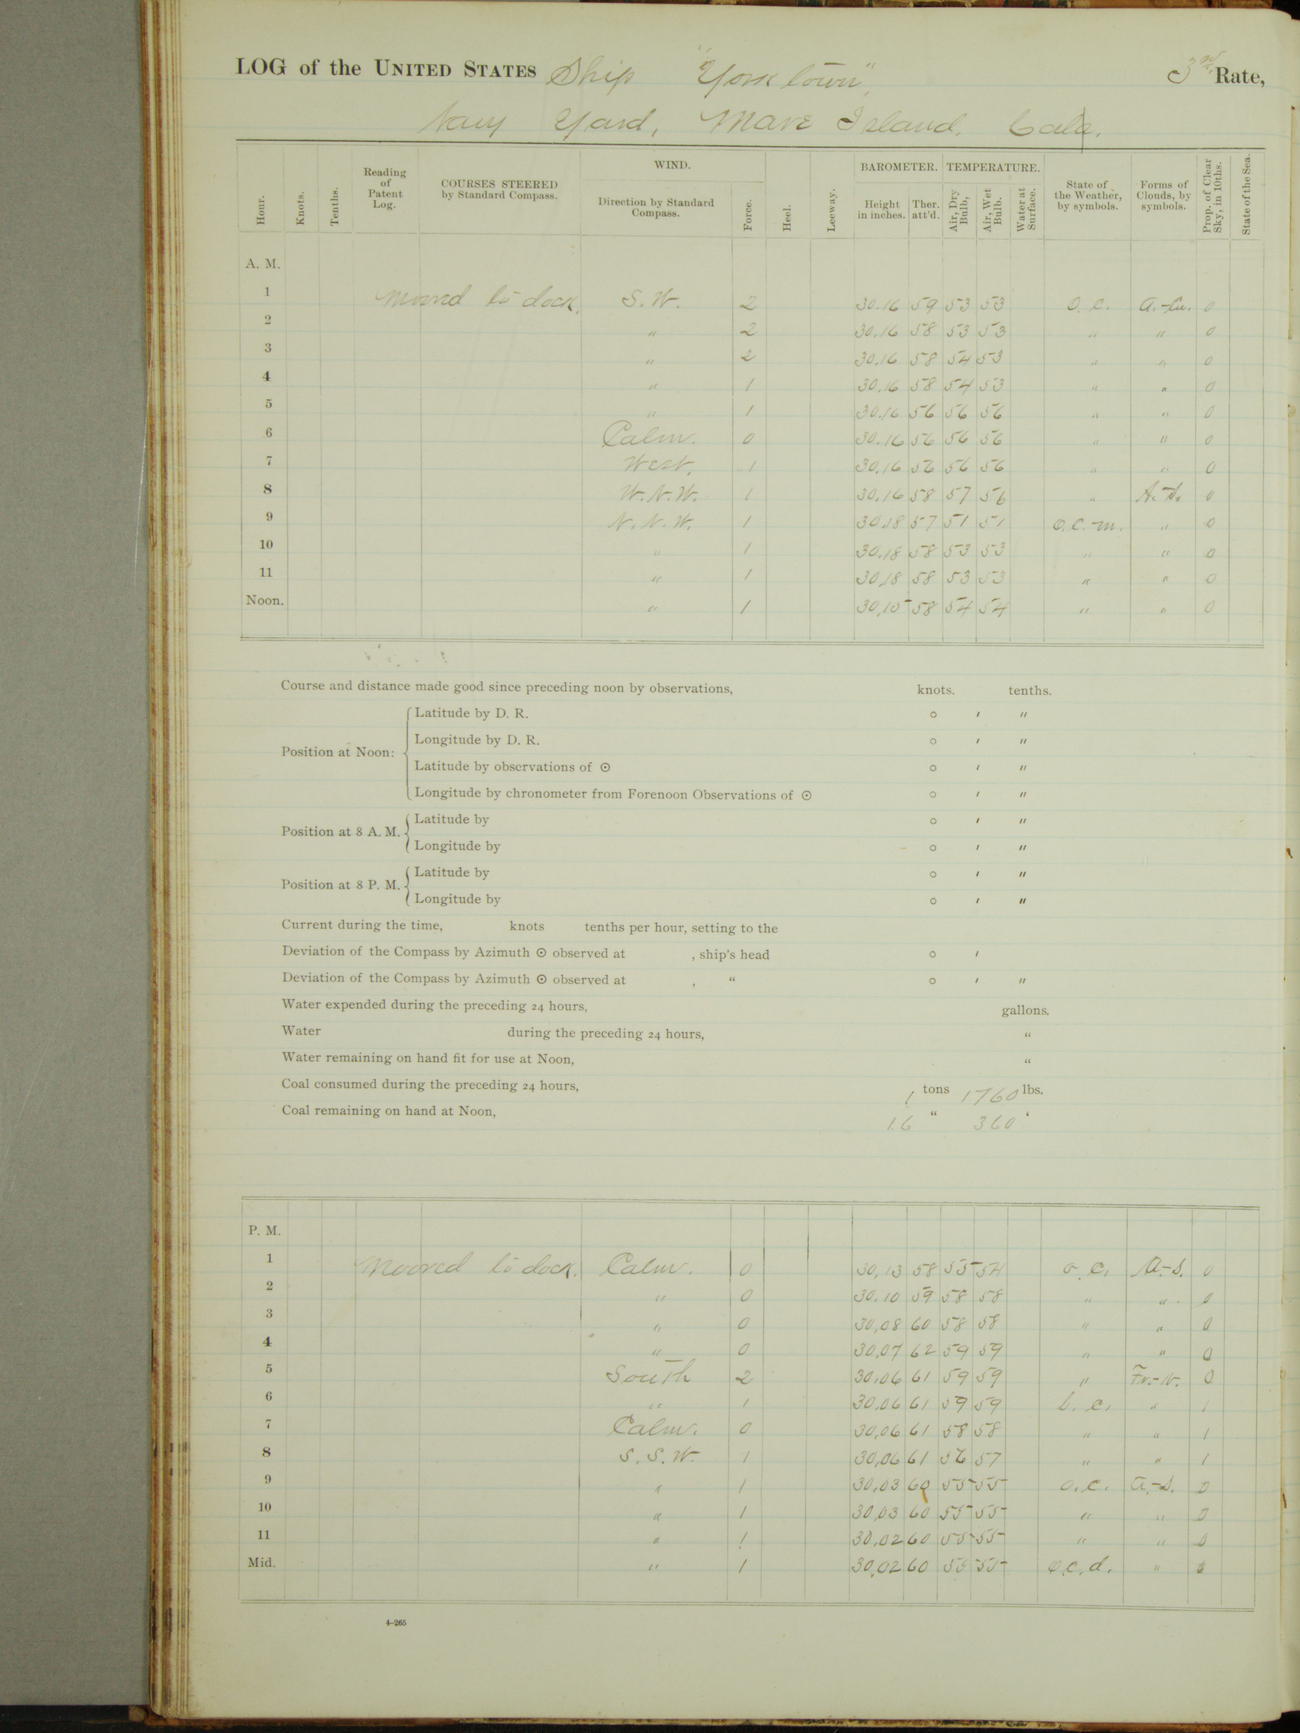 LOG of the UNITED STATES Ship "Yorktown", 3rd Rate,
Navy Yard, Mare Island, Cala.
Hour. Knots. Tenths. Reading of Patent Log. COURSES STEERED by Standard Compass. WIND. Direction by Standard Compass. Force. Heel. Leeway. BAROMETER. Height in inches. Ther. att'd. TEMPERATURE. Air, Dry Bulb. Air, Wet Bulb. Water at Surface. State of the Weather, by symbols. Forms of Clouds, by symbols. Prop. of Clear Sky, in 10ths. State of the Sea.
A. M.
1 Moored to dock. S.W. 2 30.16 59 53 53 o.c. a.-cu. 0
2 " 2 30.16 58 53 53 " " 0
3 " 2 30.16 58 54 53 " " 0
4 " 1 30.16 58 54 53 " " 0
5 " 1 30.16 56 56 56 " " 0
6 Calm. 0 30.16 56 56 56 " " 0
7 West. 1 30.16 56 56 56 " " 0
8 W.N.W. 1 30.16 58 57 56 " A.-s. 0
9 N.N.W. 1 30.18 57 51 51 o.c.m. " 0
10 " 1 30.18 58 53 53 " " 0
11 " 1 30.18 58 53 53 " " 0
Noon. " 1 30.15 58 54 54 " " 0
Course and distance made good since preceding noon by observations, knots. tenths.
Position at Noon: Latitude by D. R. ° ′ ″
Longitude by D. R. ° ′ ″
Latitude by observations of ⊙ ° ′ ″
Longitude by chronometer from Forenoon Observations of ⊙ ° ′ ″
Position at 8 A. M. Latitude by ° ′ ″
Longitude by ° ′ ″
Position at 8 P. M. Latitude by ° ′ ″
Longitude by ° ′ ″
Current during the time, knots tenths per hour, setting to the
Deviation of the Compass by Azimuth ⊙ observed at , ship's head ° ′
Deviation of the Compass by Azimuth ⊙ observed at , " ° ′ ″
Water expended during the preceding 24 hours, gallons.
Water during the preceding 24 hours, "
Water remaining on hand fit for use at Noon, "
Coal consumed during the preceding 24 hours, 1 tons 1760 lbs.
Coal remaining on hand at Noon, 16 " 360 "
P. M.
1 Moored to dock. Calm. 0 30.13 58 55 54 o.c. A.-s. 0
2 " 0 30.10 59 58 58 " " 0
3 " 0 30.08 60 58 58 " " 0
4 " 0 30.07 62 59 59 " " 0
5 South 2 30.06 61 59 59 " Fr.-N. 0
6 " 1 30.06 61 59 59 b.c. " 1
7 Calm. 0 30.06 61 58 58 " " 1
8 S.S.W. 1 30.06 61 56 57 " " 1
9 " 1 30.03 60 55 55 o.c. A.-s. 0
10 " 1 30.03 60 55 55 " " 0
11 " 1 30.02 60 55 55 " " 0
Mid. " 1 30.02 60 55 55 o.c.d. " 0
4-265